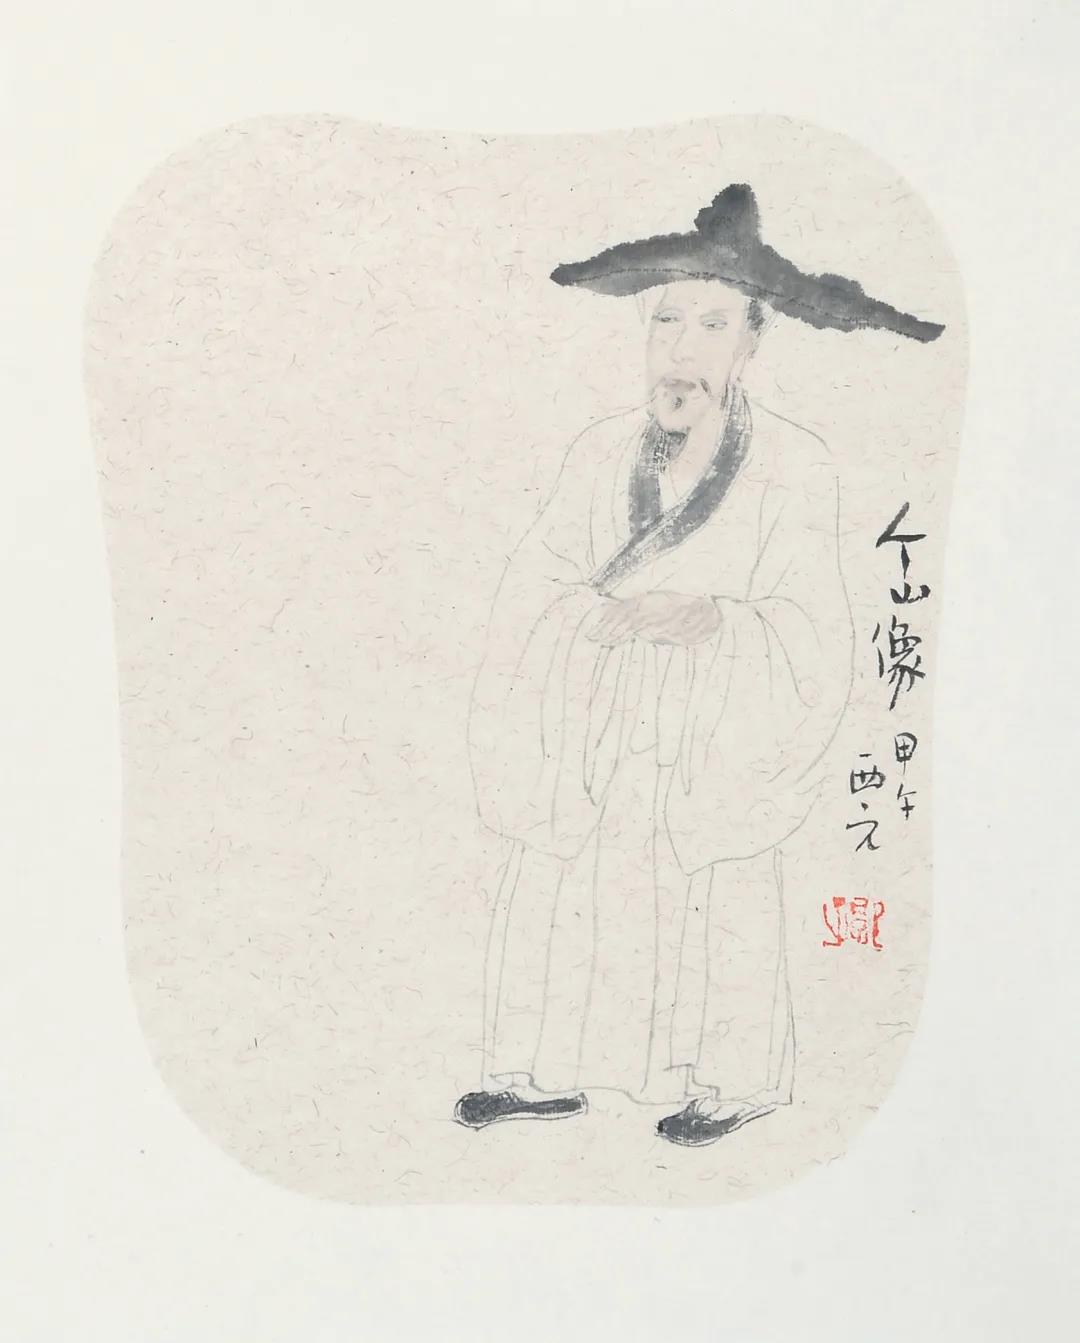 个山像
甲午
西元